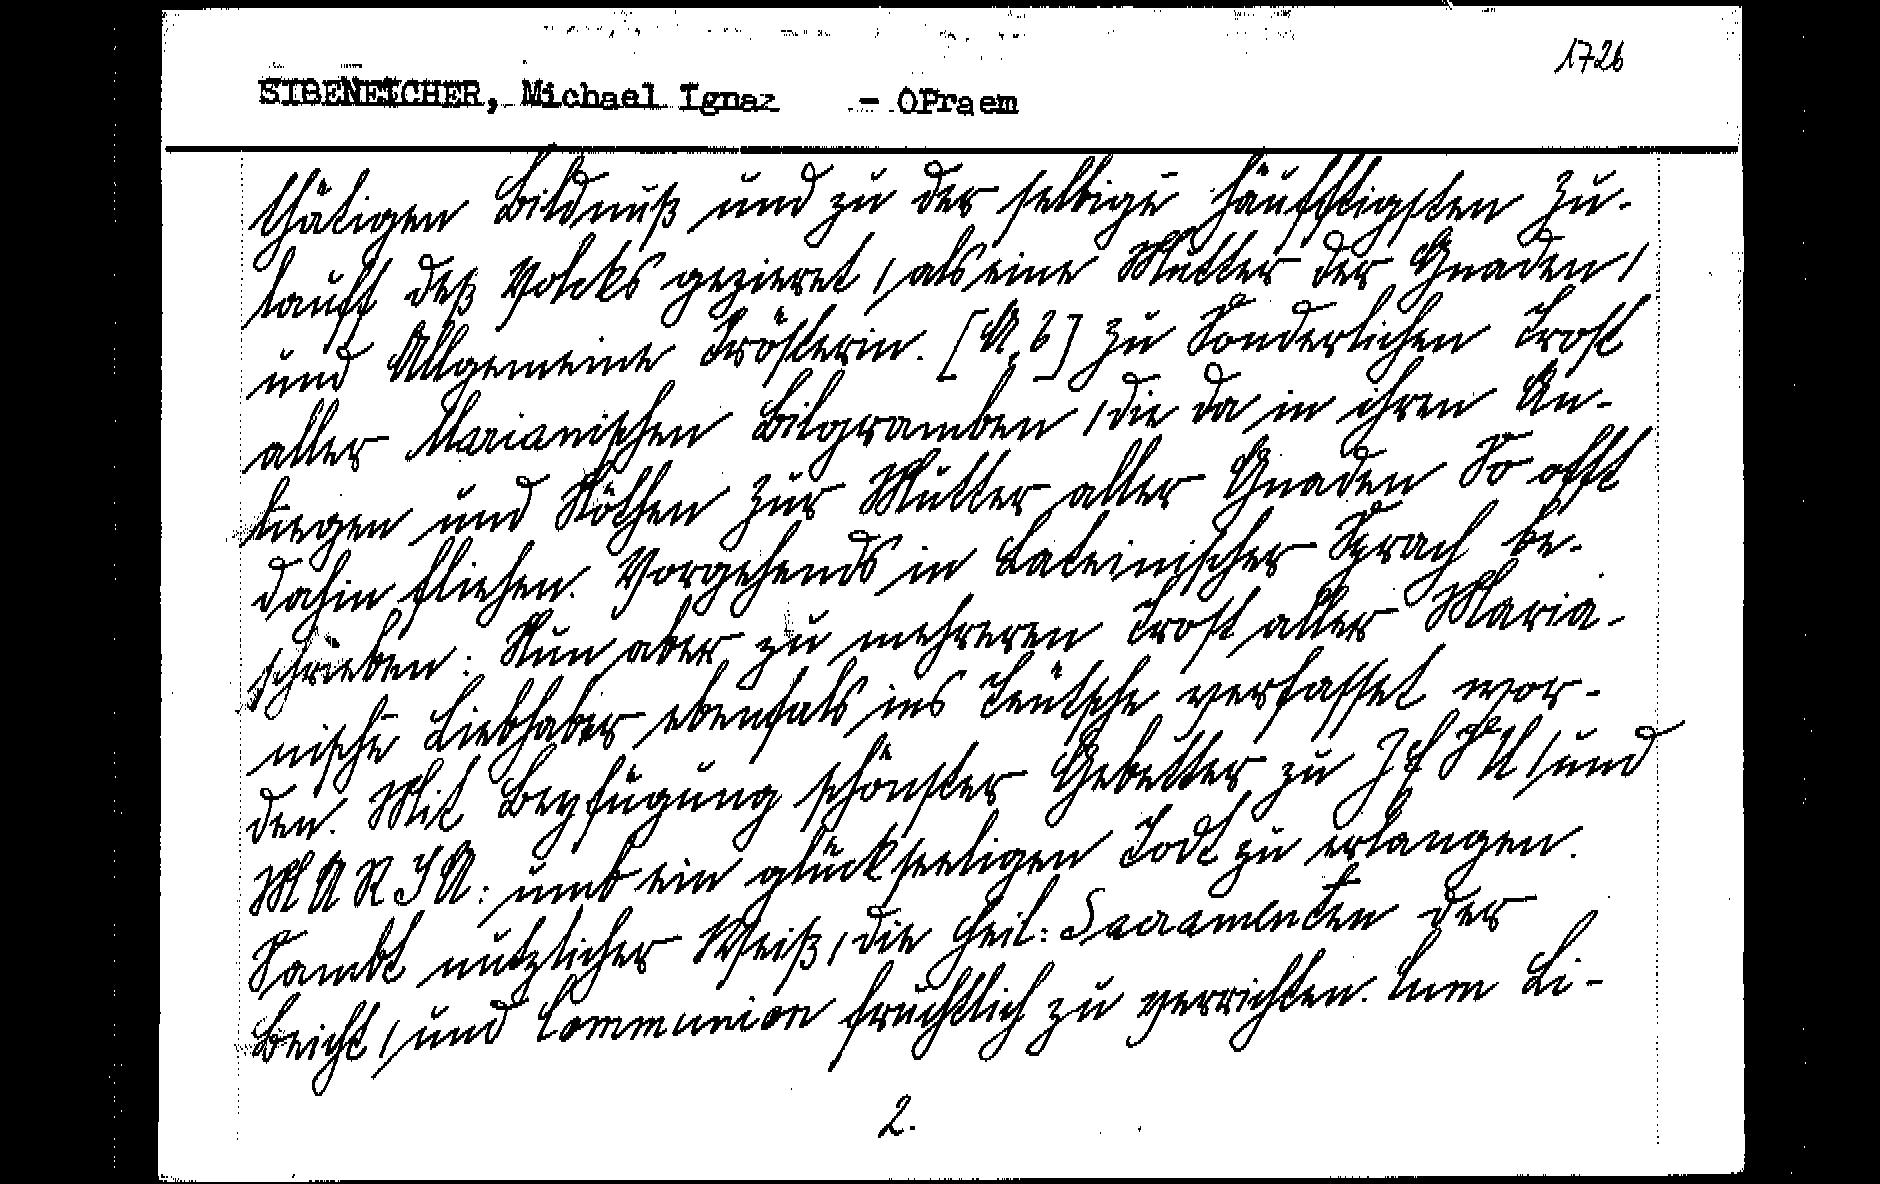 1726
SIBENEICHER, Michael Ignaz - OPraem
thätigen Bildnuß und zu der selbige häufftigsten Zu-
lauff deß Volcks gezieret / als eine Mutter der Gnaden /
und Allgemeine Trösterin. [A 6] Zu Sonderlichen Trost
aller Marianischen Bilgramben / die da in ihren An-
liegen und Nöthen zur Mutter aller Gnaden So offt
dahin fliehen. Vorgehends in Lateinischer Sprach be-
schrieben: Nun aber zu mehreren Trost aller Maria-
nische Liebhaber ebenfals ins Teütsche verfasset wor-
den. Mit Beyfügung schönster Gebetter zu JESU / und
MARIA: umb ein glückseeligen Todt zu erlangen.
Sambt nutzlicher Weiß / die Heil: Sacramenten der
Beicht / und Communion fruchtlich zu verrichten. Cum Li-
2.